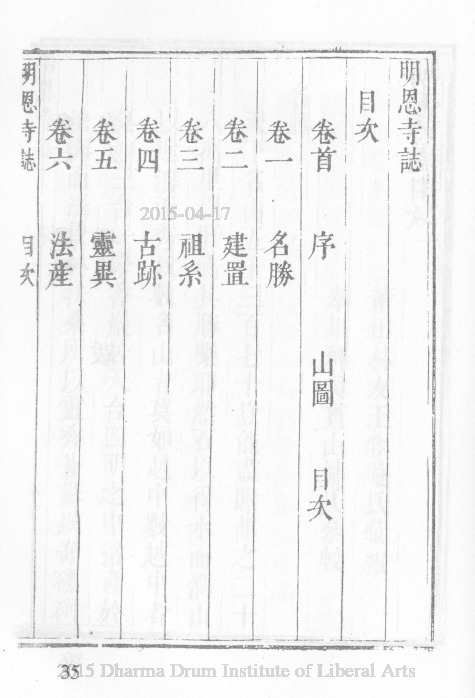 明恩寺誌
目次
卷首 序 山圖 目次
卷一 名勝
卷二 建置
卷三 祖系
卷四 古跡
卷五 靈異
卷六 法産
明恩寺誌 目次
2015-04-17
35
15 Dharma Drum Institute of Liberal Arts